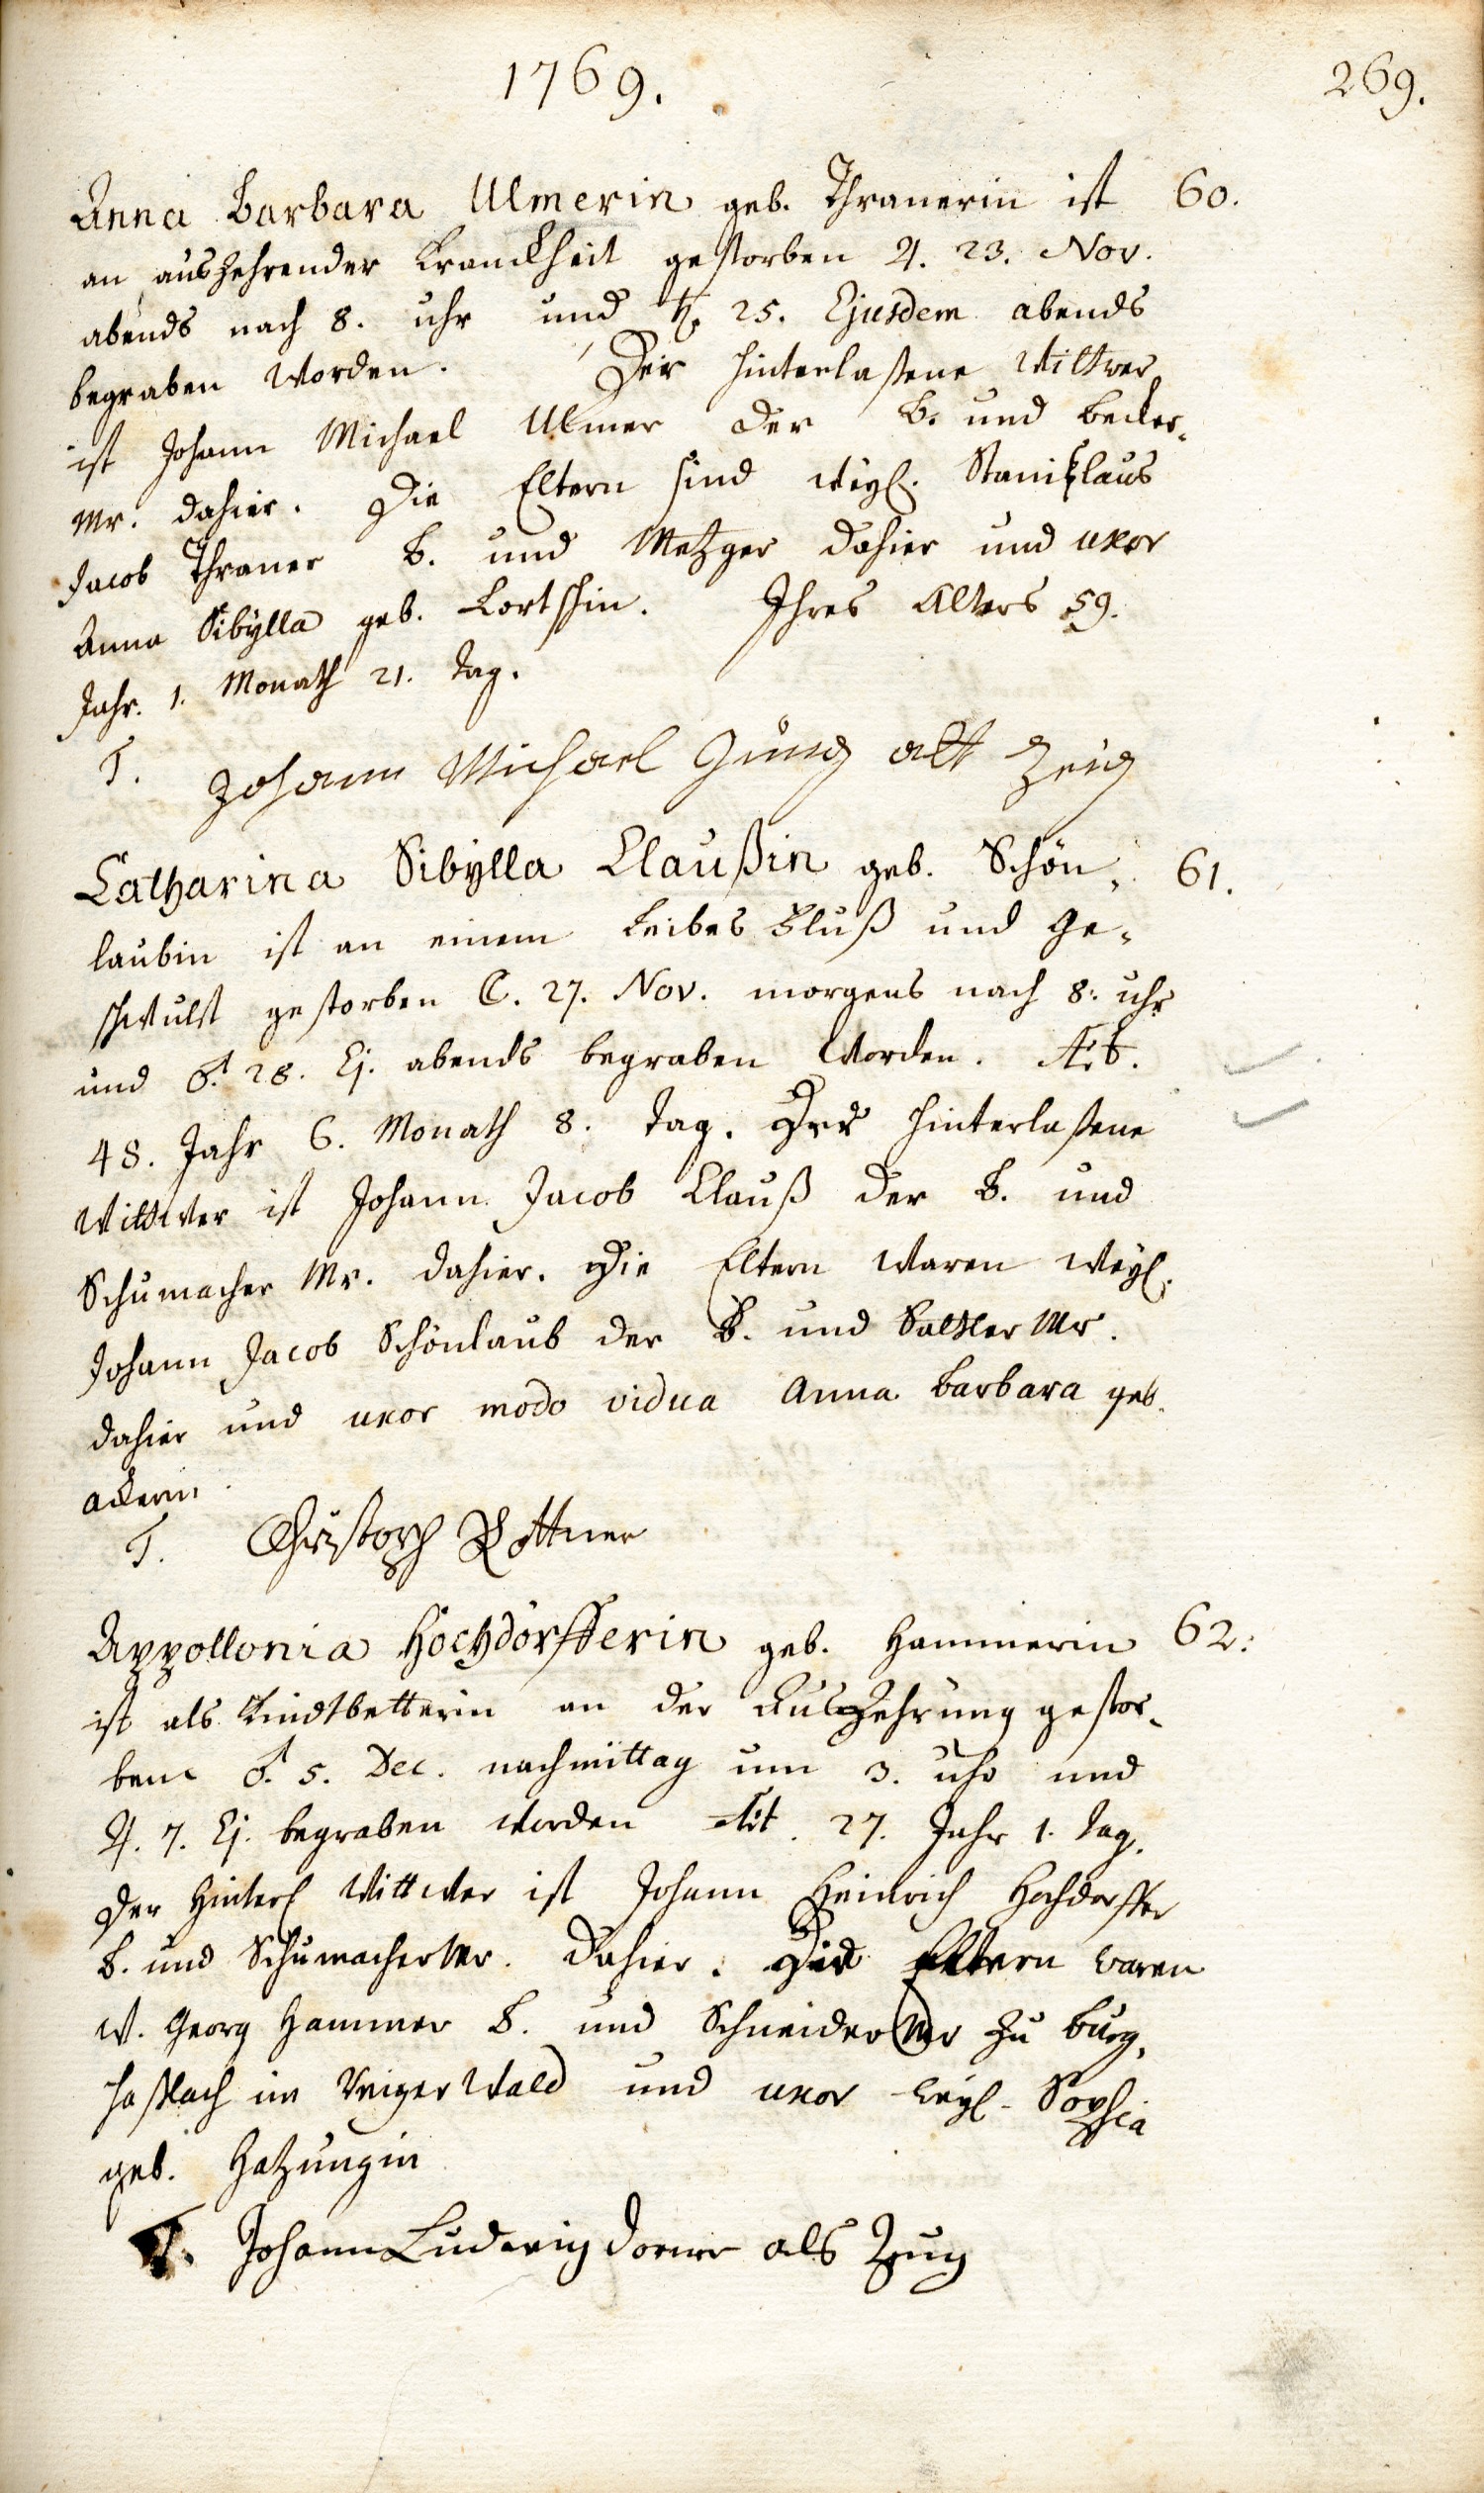 1769.
269.
Anna Barbara Ulmerin geb. Thranerin ist 60.
an auszehrender Kranckheit gestorben ♃. 23. Nov.
abends nach 8. uhr und ♄. 25. Ejusdem abends
begraben worden. Der hinterlaßene Wittwer
ist Johann Michael Ulmer der B. und Becker-
Mr. dahier. Die Eltern sind weyl. Stanislaus
Jacob Thraner B. und Metzger dahier und uxor
Anna Sibÿlla geb. Lortschin. Ihres Alters 59.
Jahr. 1. Monath 21. Tag.
T. Johann Michael Jung alß Zeug
Catharina Sibÿlla Claußin geb. Schön- 61.
laubin ist an einem Leibes Fluß und Ge-
schwulst gestorben ☾. 27. Nov. morgens nach 8. uhr
und ♂. 28. Ej. abends begraben worden. Æt.
48. Jahr 6. Monath 8. Tag. Der hinterlaßene
Wittwer ist Johann Jacob Clauß der B. und
Schumacher Mr. dahier. Die Eltern waren weyl.
Johann Jacob Schönlaub der B. und Sattler Mr.
dahier und uxor modo vidua Anna Barbara geb.
Ackerin.
T. Christoph Rottner
Appollonia Hochdörfferin geb. Hammerin 62.
ist als Kindtbetterin an der Auszehrung gestor-
ben ♂. 5. Dec. nachmittag um 3. uhr und
♃. 7. Ej. begraben worden Æt. 27. Jahr 1. Tag.
Der hinterl Wittwer ist Johann Heinrich Hochdorffer
B. und Schumacher Mr. dahier. Die Eltern waren
W. Georg Hammer B. und Schneider Mr zu Burg-
haßlach im Steigerwald und uxor weyl. Sophia
geb. Hatzungin
T. Johann Ludwig Dorner als Zeug